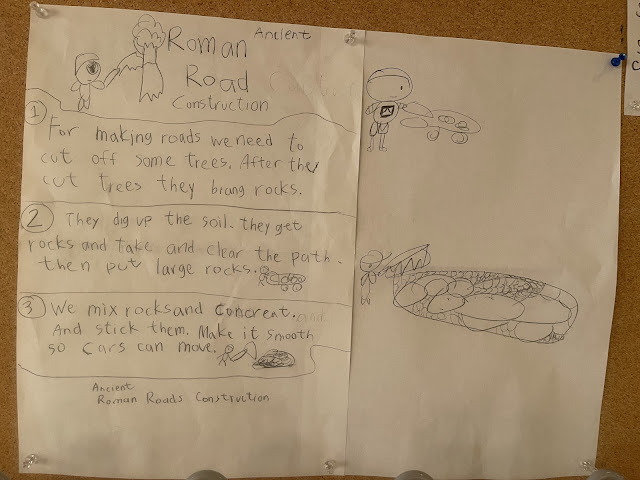 Roman Ancient
Road
Construction
1 For making roads we need to
cut off some trees. After they
cut trees they brang rocks.
2 They dig up the soil. they get
rocks and take and clear the path.
then put large rocks.
3 We mix rocks and concrent. and
And stick them. Make it smooth
so cars can move.
Ancient
Roman Roads Construction